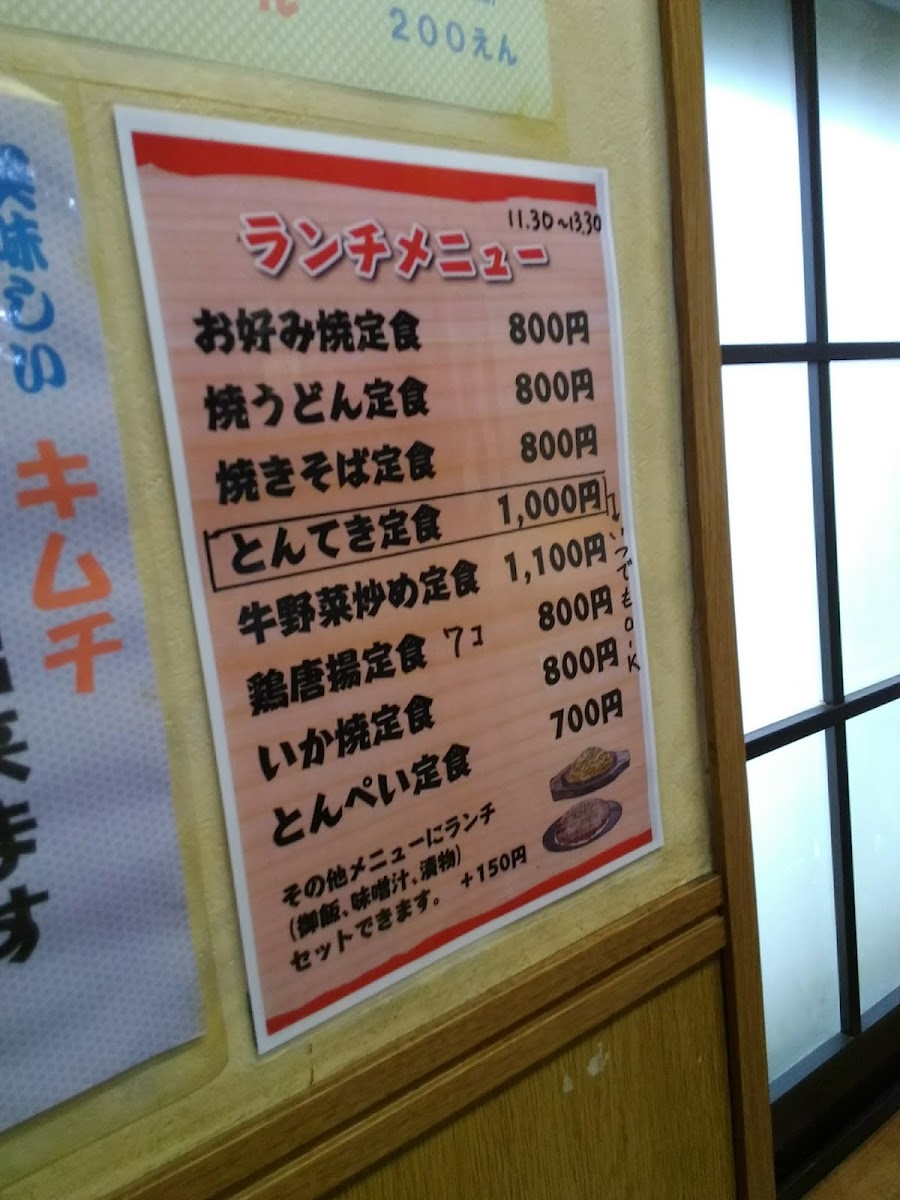 200えん
美味しい
キムチ
菜ます
ランチメニュー 11.30~13.30
お好み焼定食 800円
焼うどん定食 800円
焼きそば定食 800円
とんてき定食 1,000円
いつでもO.K
牛野菜炒め定食 1,100円
鶏唐揚定食 7コ 800円
いか焼定食 800円
とんぺい定食 700円
その他メニューにランチ
(御飯、味噌汁、漬物) +150円
セットできます。